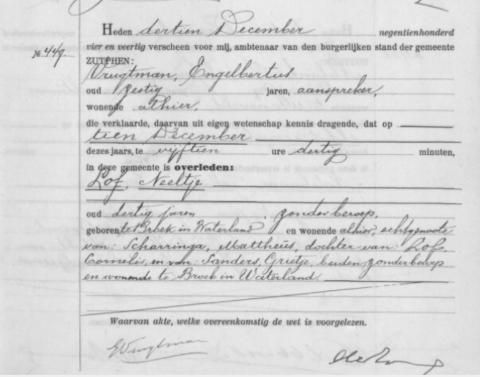 Heden dertien December negentienhonderd
No. 449. vier en veertig verscheen voor mij, ambtenaar van den burgerlijken stand der gemeente
ZUTPHEN:
Vrugtman, Engelbertus
oud zestig jaren, aanspreker,
wonende alhier,
die verklaarde, daarvan uit eigen wetenschap kennis dragende, dat op
tien December
dezes jaars, te vijftien ure dertig minuten,
in deze gemeente is overleden:
Lof, Neeltje
oud dertig jaren, zonder beroep,
geboren te Broek in Waterland en wonende alhier, echtgenoote
van: Scharringa, Mattheüs, dochter van: Lof,
Cornelis, en van: Sanders, Grietje, beiden zonder beroep
en wonende te Broek in Waterland.
Waarvan akte, welke overeenkomstig de wet is voorgelezen.
EVrugtman